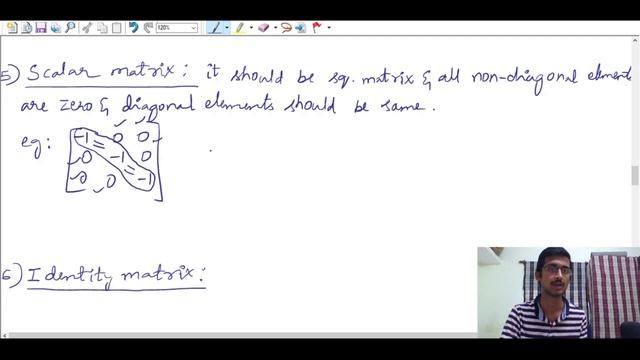 120%
5) Scalar matrix: it should be sq. matrix & all non-diagonal elements
are zero & diagonal elements should be same.
eg: -1 0 0
0 -1 0
0 0 -1
6) Identity matrix: